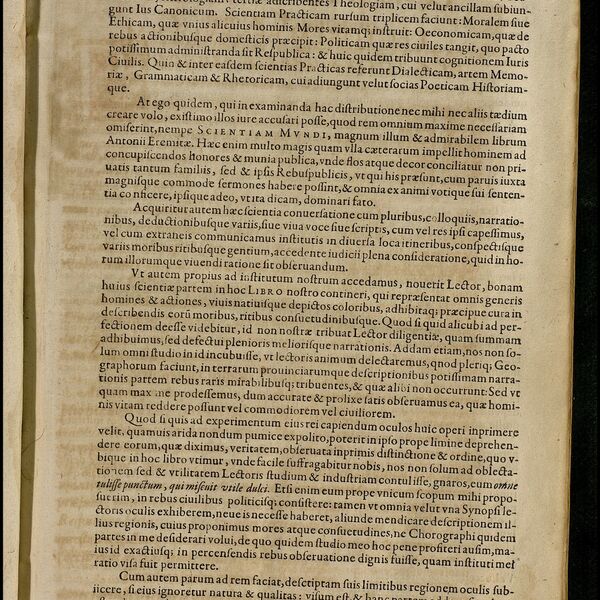 adscribentes Theologiam, cui velut ancillam subiun-
gunt Ius Canonicum. Scientiam Practicam rursum triplicem faciunt: Moralem siue
Ethicam, quæ vnius alicuius hominis Mores vitamq; instruit: Oeconomicam, quæ de
rebus actionibusque domesticis præcipit: Politicam quæ res ciuiles tangit, quo pacto
potissimum administranda sit Respublica: & huic quidem tribuunt cognitionem Iuris
Ciuilis. Quin & inter easdem scientias Practicas referunt Dialecticam, artem Memo-
riæ, Grammaticam & Rhetoricam, cui adiungunt velut socias Poeticam Historiam-
que.
At ego quidem, qui in examinanda hac distributione nec mihi nec aliis tædium
creare volo, existimo illos iure accusari posse, quod rem omnium maxime necessariam
omiserint, nempe SCIENTIAM MVNDI, magnum illum & admirabilem librum
Antonii Eremitæ. Hæc enim multo magis quam vlla cæterarum impellit hominem ad
concupiscendos honores & munia publica, vnde flos atque decor conciliatur non pri-
uatis tantum familiis, sed & ipsis Rebuspublicis, vt qui his præsunt, cum paruis iuxta
magnisque commode sermones habere possint, & omnia ex animi votique sui senten-
tia conficere, ipsque adeo, vt ita dicam, dominari fato.
Acquiritur autem hæc scientia conuersatione cum pluribus, colloquiis, narratio-
nibus, deductionibusque variis, siue viua voce siue scriptis, cum vel res ipsi capessimus,
vel cum extraneis communicamus institutis in diuersa loca itineribus, conspectisque
variis moribus ritibusque gentium, accedente iudicii plena consideratione, quid in ho-
rum illorumque viuendi ratione sit obseruandum.
Vt autem propius ad institutum nostrum accedamus, nouerit Lector, bonam
huius scientiæ partem in hoc LIBRO nostro contineri, qui repræsentat omnis generis
homines & actiones, viuis natiuisque depictos coloribus, adhibitaq; præcipue cura in
describendis eorū moribus, ritibus consuetudinibusque. Quod si quid alicubi ad per-
fectionem deesse videbitur, id non nostræ tribuat Lector diligentiæ, quam summam
adhibuimus, sed defectui plenioris meliorisque narrationis. Addam etiam, nos non so-
lum omni studio in id incubuisse, vt lectoris animum delectaremus, quod pleriq; Geo-
graphorum faciunt, in terrarum prouinciarumque descriptionibus potissimam narra-
tionis partem rebus raris mirabilibusq; tribuentes, & quæ alibi non occurrunt: Sed vt
quam max me prodessemus, dum accurate & prolixe satis obseruamus ea, quæ homi-
nis vitam reddere possunt vel commodiorem vel ciuiliorem.
Quod si quis ad experimentum eius rei capiendum oculos huic operi inprimere
velit, quamuis arida nondum pumice expolito, poterit in ipso prope limine deprehen-
dere eorum, quæ diximus, veritatem, obseruata inprimis distinctione & ordine, quo v-
bique in hoc libro vtimur, vnde facile suffragabitur nobis, nos non solum ad oblecta-
tionem sed & vtilitatem Lectoris studium & industriam contulisse, gnaros, eum omne
tulisse punctum, qui miscuit vtile dulci. Etsi enim eum prope vnicum scopum mihi propo-
suerim, in rebus ciuilibus politicisq; consistere: tamen vt omnia velut vna Synopsi le-
ctoris oculis exhiberem, neue is necesse haberet, aliunde mendicare descriptionem il-
lius regionis, cuius proponimus mores atque consuetudines, ne Chorographi quidem
partes in me desiderari volui, de quo quidem studio meo hoc pene profiteri ausim, ma-
ius id exactiusq; in percensendis rebus obseruatione dignis fuisse, quam instituti mei
ratio visa fuit permittere.
Cum autem parum ad rem faciat, descriptam suis limitibus regionem oculis sub-
iicere, si eius ignoretur natura & qualitas: visum est &